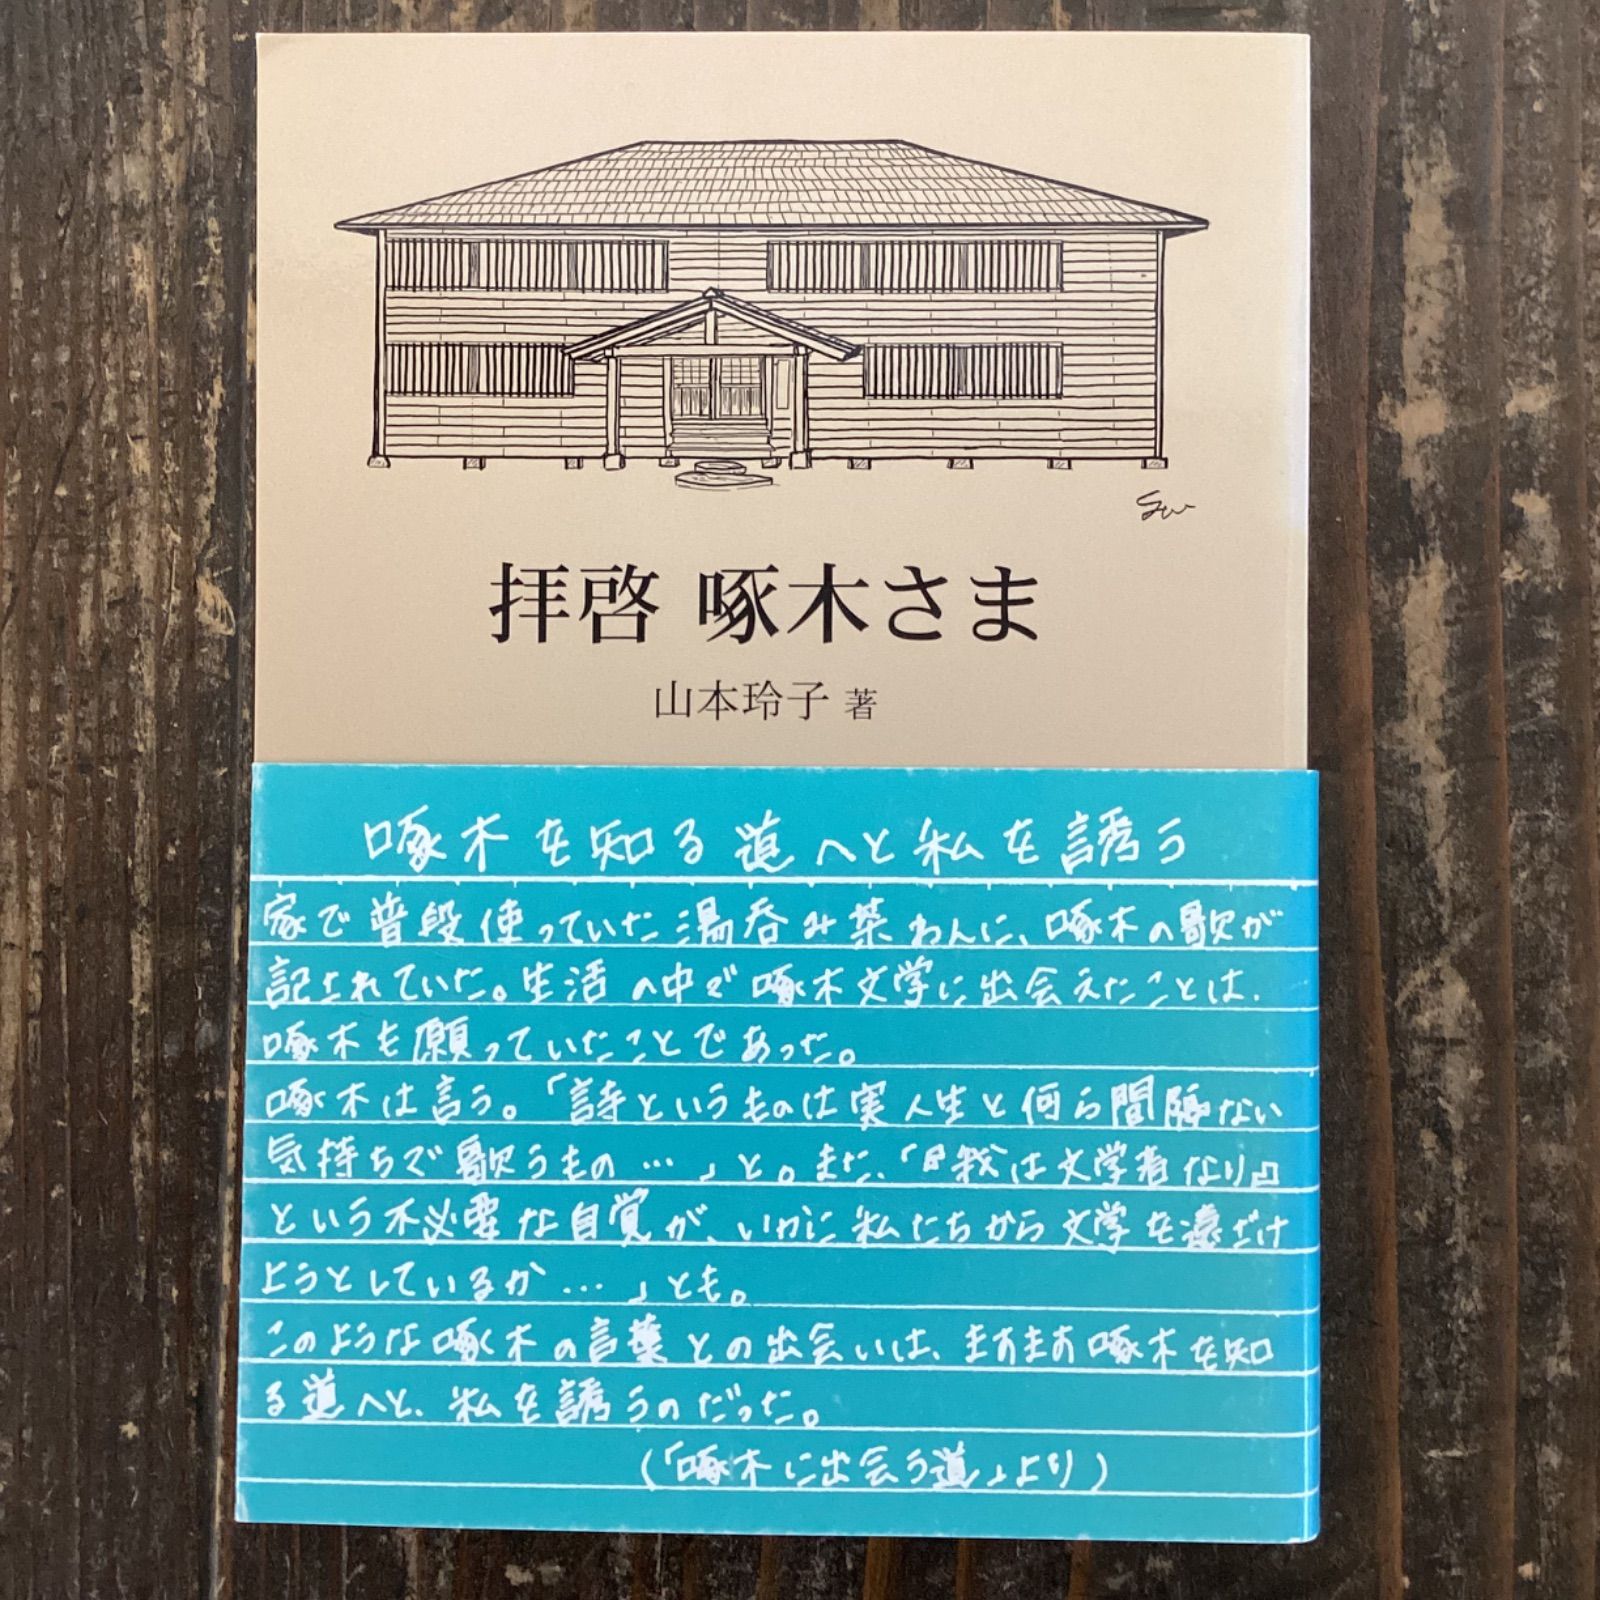 拝啓 啄木さま
山本玲子 著
啄木を知る道へと私を誘う
家で普段使っていた湯呑み茶わんに、啄木の歌が
記されていた。生活の中で啄木文学に出会えたことは、
啄木も願っていたことであった。
啄木は言う。「詩というものは実人生と何ら間隔ない
気持ちで歌うもの…」と。また、「『我は文学者なり』
という不必要な自覚が、いかに私たちから文学を遠ざけ
ようとしているか…」とも。
このような啄木の言葉との出会いは、ますます啄木を知
る道へと、私を誘うのだった。
(「啄木に出会う道」より)